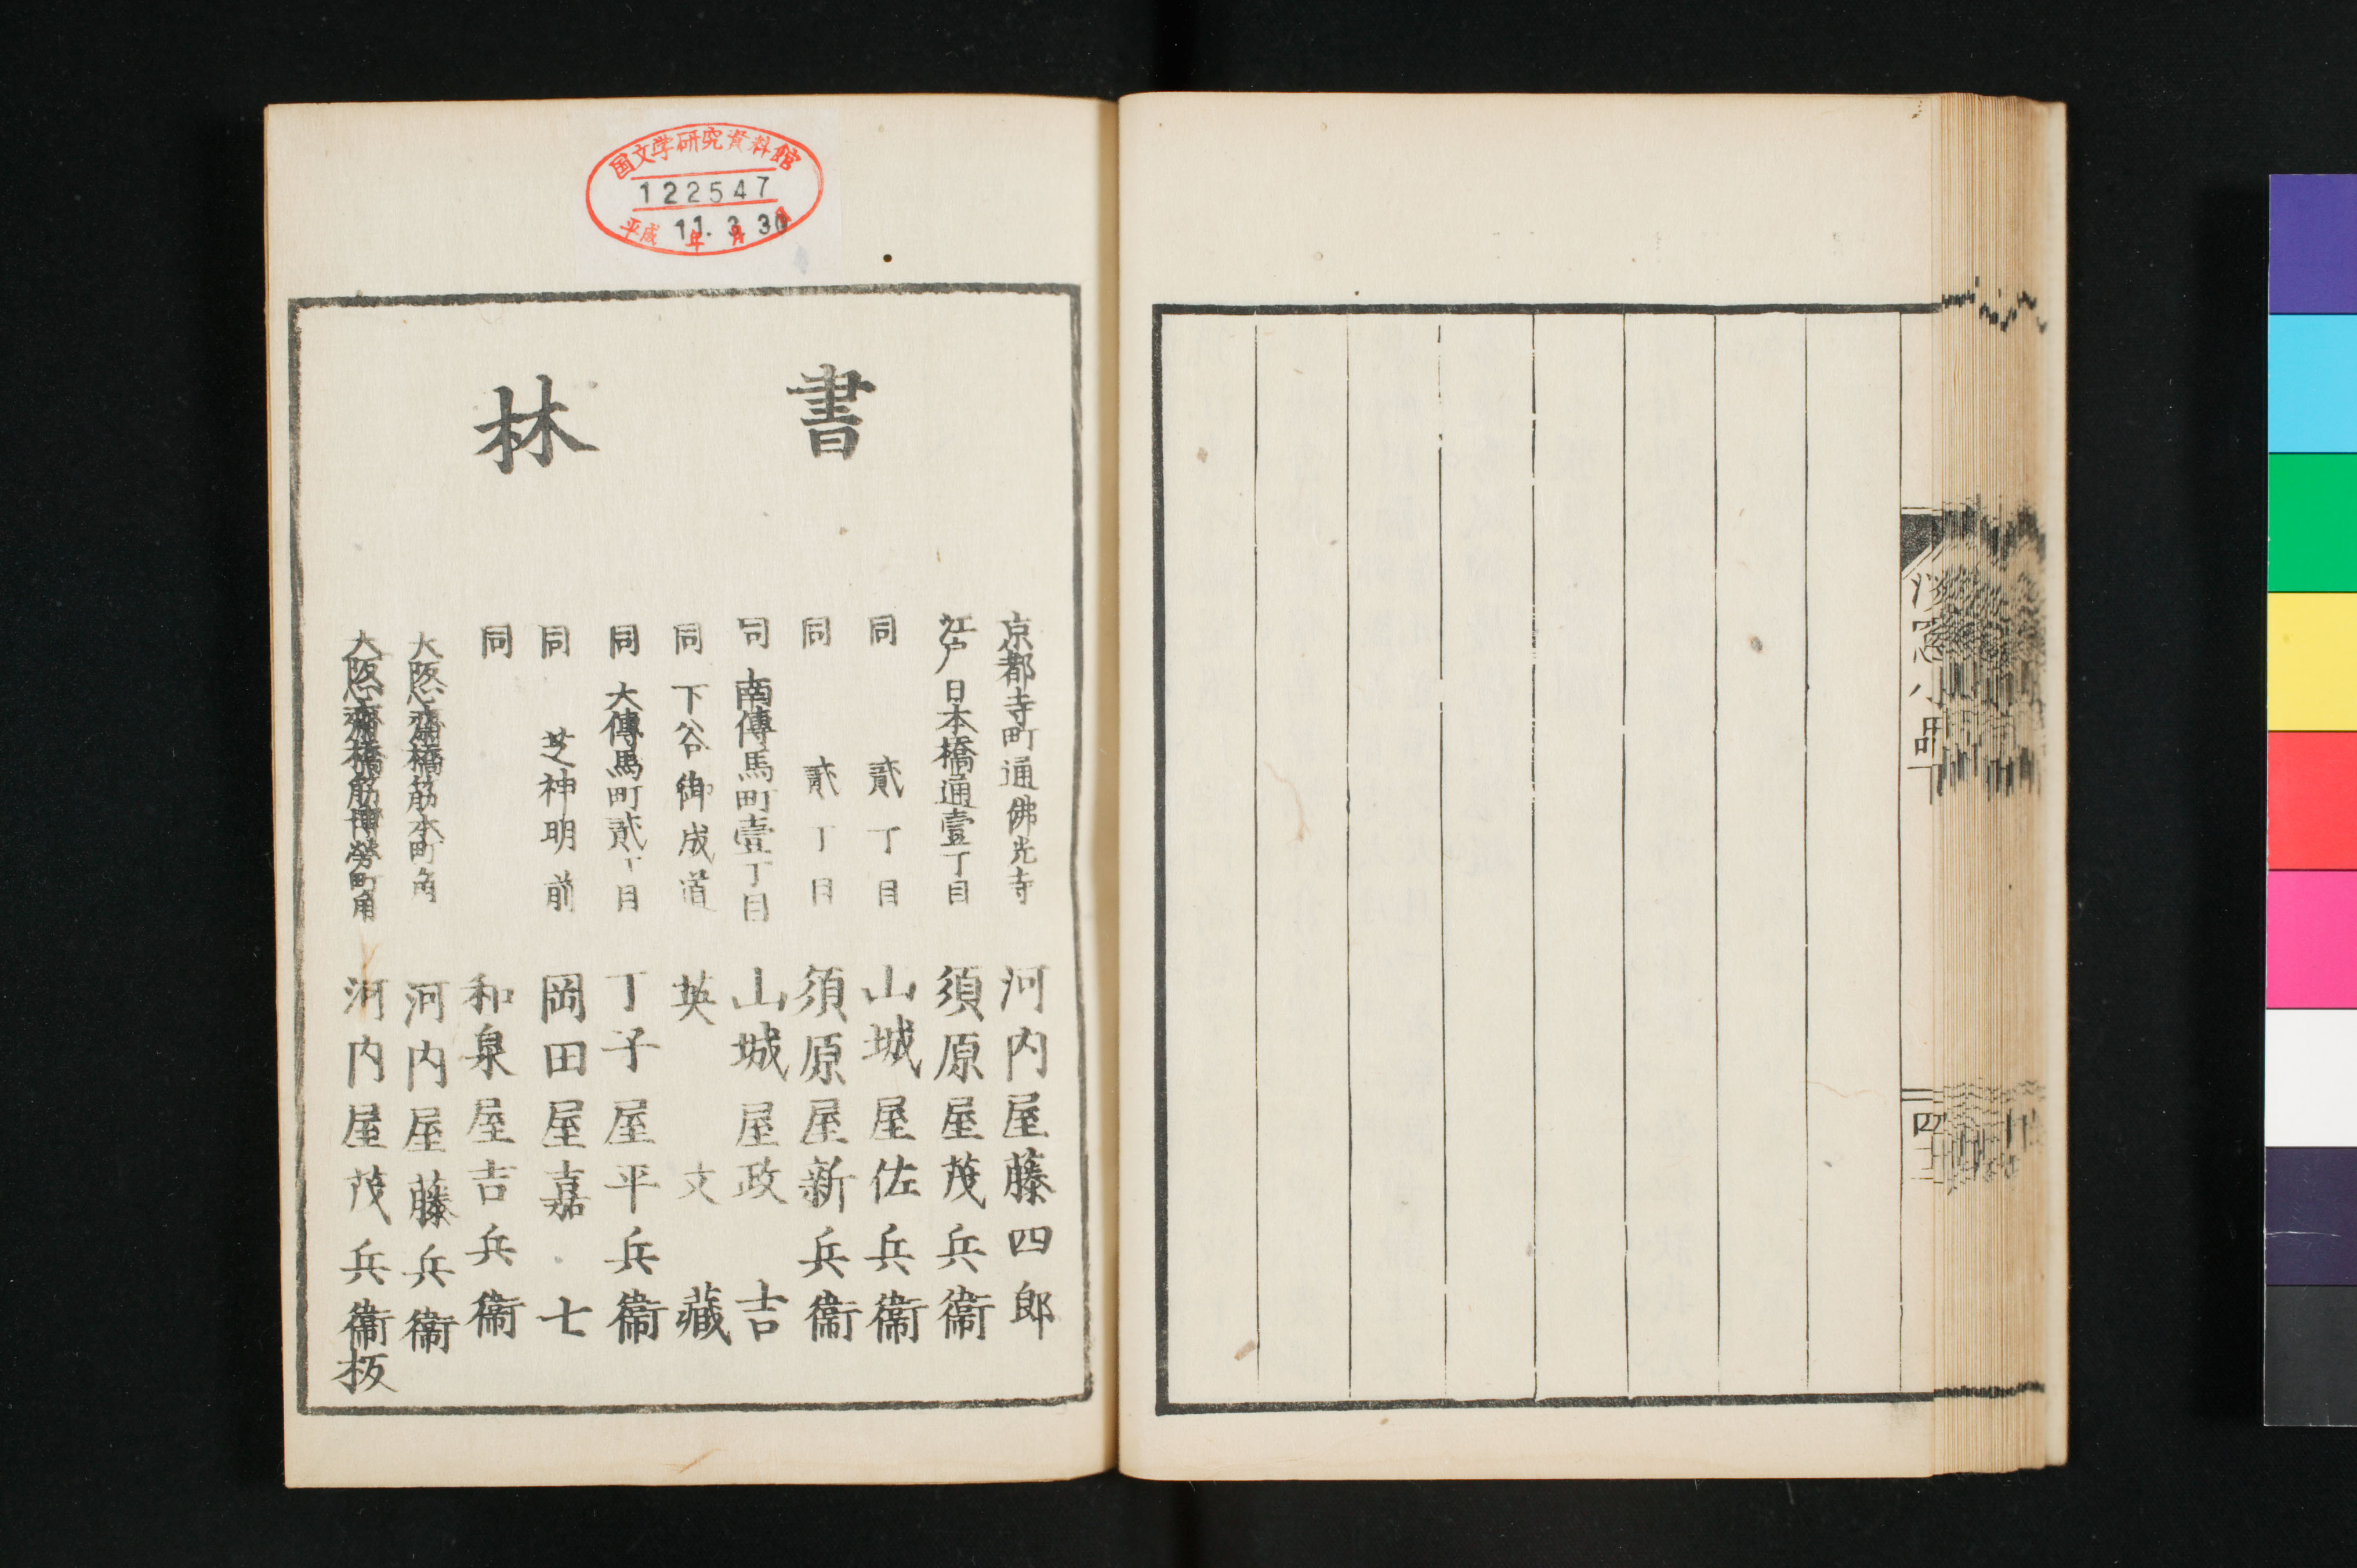 淡窓小品下
四十
国文学研究資料館
122547
平成 11年 3月 30日
書林
京都寺町通佛光寺 河内屋藤四郎
江戸日本橋通壹丁目 須原屋茂兵衞
同 貳丁目 山城屋佐兵衞
同 貳丁目 須原屋新兵衞
同 南傳馬町壹丁目 山城屋政吉
同 下谷御成道 英文藏
同 大傳馬町貳丁目 丁子屋平兵衞
同 芝神明前 岡田屋嘉七
同 和泉屋吉兵衞
大阪心齋橋筋本町角 河内屋藤兵衞
大阪心齋橋筋博勞町角 河内屋茂兵衞板